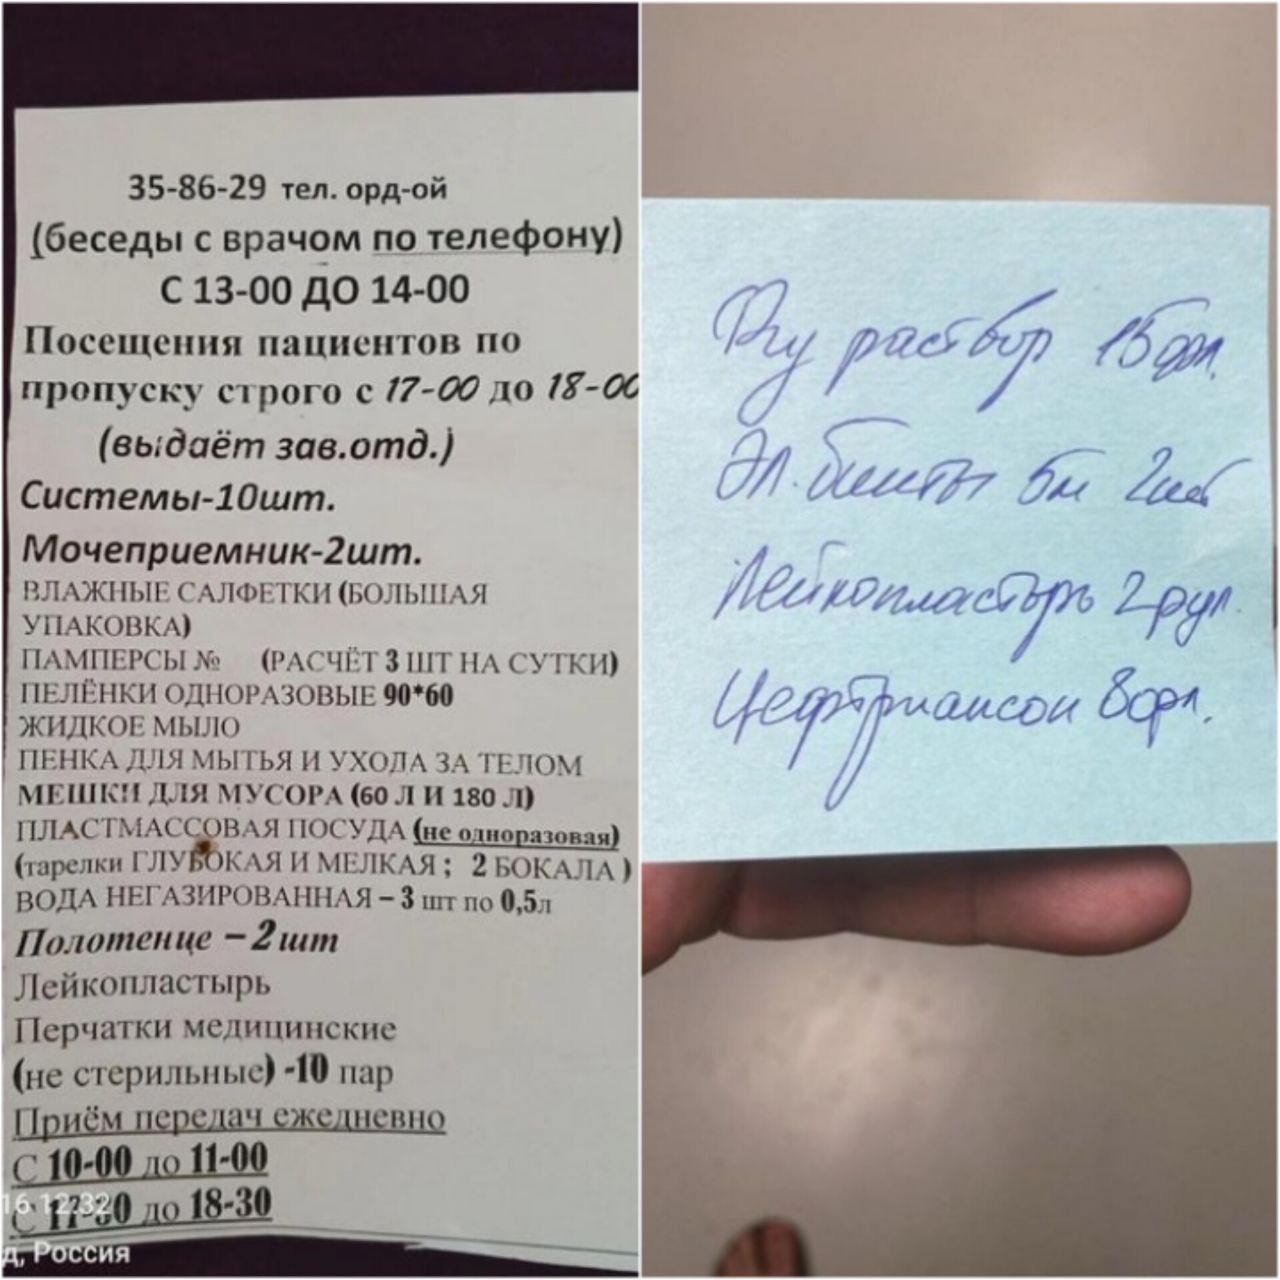 35-86-29 тел. орд-ой
(беседы с врачом по телефону)
С 13-00 ДО 14-00
Посещения пациентов по
пропуску строго с 17-00 до 18-00
(выдаёт зав.отд.)
Системы-10шт.
Мочеприемник-2шт.
ВЛАЖНЫЕ САЛФЕТКИ (БОЛЬШАЯ
УПАКОВКА)
ПАМПЕРСЫ № (РАСЧЁТ 3 ШТ НА СУТКИ)
ПЕЛЁНКИ ОДНОРАЗОВЫЕ 90*60
ЖИДКОЕ МЫЛО
ПЕНКА ДЛЯ МЫТЬЯ И УХОДА ЗА ТЕЛОМ
МЕШКИ ДЛЯ МУСОРА (60 Л И 180 Л)
ПЛАСТМАССОВАЯ ПОСУДА (не одноразовая)
(тарелки ГЛУБОКАЯ И МЕЛКАЯ ; 2 БОКАЛА )
ВОДА НЕГАЗИРОВАННАЯ – 3 шт по 0,5л
Полотенце – 2шт
Лейкопластырь
Перчатки медицинские
(не стерильные) -10 пар
Приём передач ежедневно
С 10-00 до 11-00
С 17-30 до 18-30
16 12:32
д, Россия
раствор 15фл.
Эл. бинты 5м 2шт
Лейкопластырь 2рул.
Цефтриаксон 8фл.